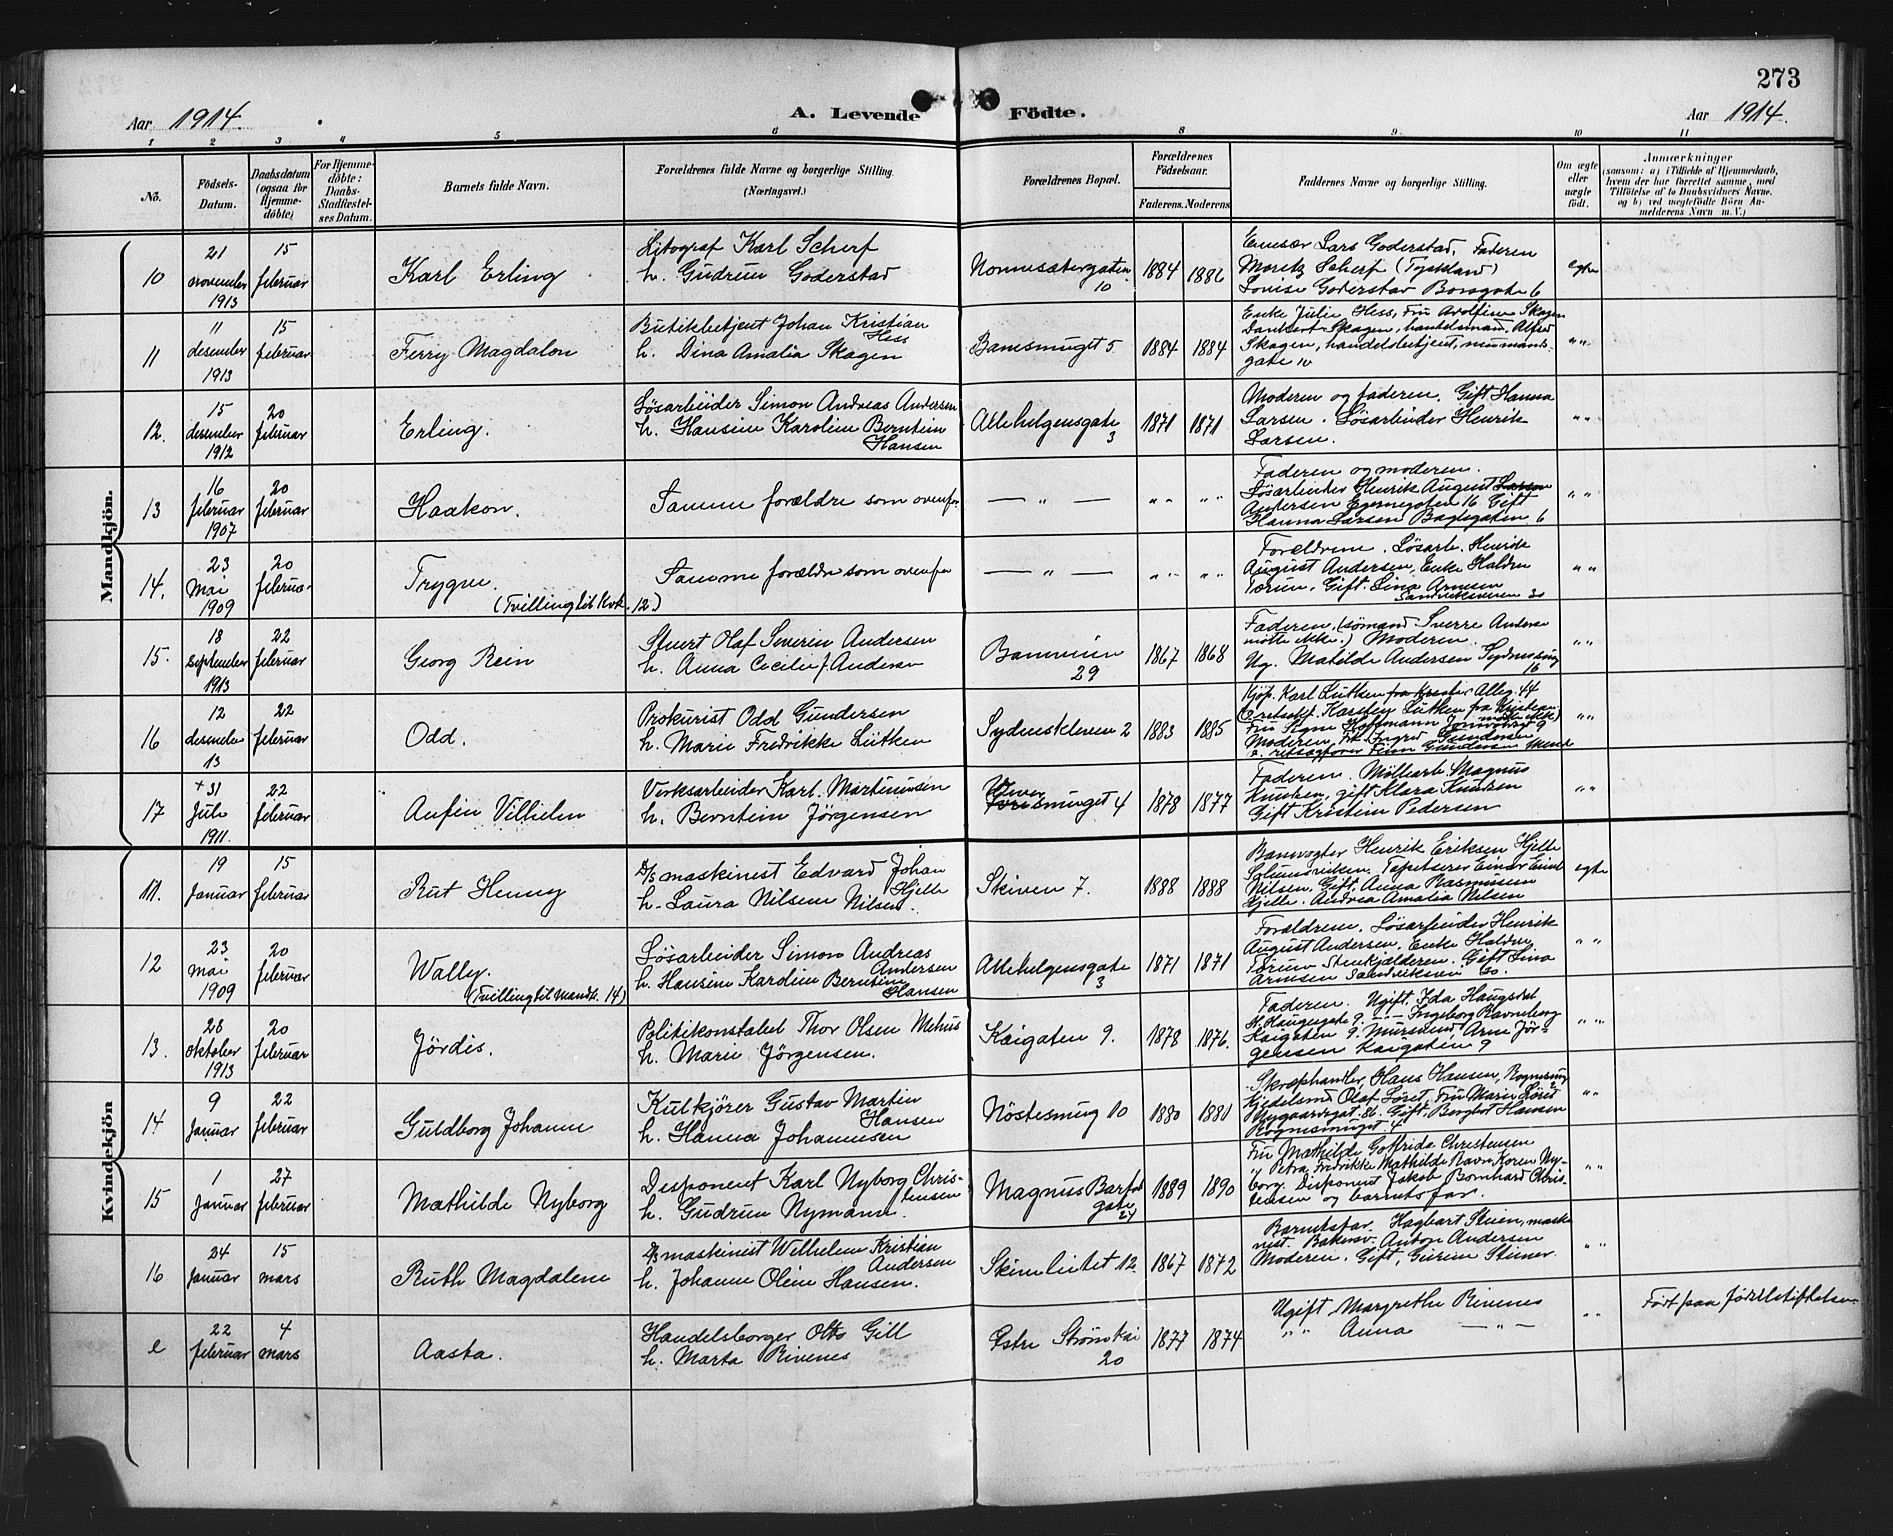 273
Aar 1914.
A. Levende Födte.
Aar 1914.
1 2 3 4 5 6 8 9 10 11
No.
Födsels-Datum.
Daabsdatum (ogsaa för Hjemme-döbte)
For Hjemme-döbte: Daabs-Stadfæstel-ses Datum.
Barnets fulde Navn.
Forældrenes fulde Navne og borgerlige Stilling.
(Næringsvei.)
Forældrenes Bopæl.
Forældrenes Födselsaar.
Faderens. Moderens
Faddernes Navne og borgerlige Stilling.
Om ægte eller uægte födt.
Anmærkninger
(saasom: a) i Tilfælde af Hjemmedaab,
hvem der har forrettet samme, med
Tilföielse af to Daabsvidners Navne.
og b) ved uegtefödte Börn An-
melderens Navn m. V.)
Mandkjön.
10
21 november 1913
15 februar
Karl Erling
Litograf Karl Scherf
h. Gudrun Goderstad
Nonnesætergaten 10
1884 1886
Lars Goderstad, Faderen
Moritz Scherf (Tyskland)
Lovise Goderstad Borsgate 6
egte
11
11 desember 1913
15 februar
Ferry Magdalon
Butikbetjent Johan Kristian Hess
h. Dina Amalia Skagen
Banesmuget 5
1884 1884
Enke Julie Hess, Fru Adolfine Skagen
Dankert Skagen, handelsmand, Alfred
Skagen, handelsbetjent, neumands-
gate
" "
12.
15 desember 1912
20 februar
Erling.
Løsarbeider Simon Andreas Andersen
h. Hansine Karoline Berntine Hansen
Allehelgensgate 3
1871 1871
Moderen og faderen. Gift Hanna
Larsen. Løsarbeider Henrik
Larsen.
" "
13
16 februar 1907
20 februar
Haakon.
Samme forældre som ovenfor
— " —
" " " "
Faderen og moderen.
Løsarbeider Henrik August Larsen
Andersen Egernegaten 16 Gift
Hanna Larsen Baglegaten 6
" "
14.
23 Mai 1909
20 februar
Trygve.
(Tvilling til Kvk. 12.)
Samme forældre som ovenfor
— " —
" " " "
Forældrene. Løsarb. Henrik
August Andersen, Enke Haldis
Torun, Gift. Lina Arnesen
Sandviksveien 30
" "
15.
18 september 1913
22 februar
Georg Rein
Stuert Olaf Severin Andersen
h. Anna Cecilie f Andersen
Baneveien 29
1867 1868
Faderen, (sømand Sverre Andersen
møtte ikke.) Moderen.
Ug. Mathilde Andersen Sydnessmug
16
" "
16
12 desember 13
22 februar
Odd.
Prokurist Odd Gundersen
h. Marie Fredrikke Lütken
Sydneskleven 2
1883 1885
Kjøp. Karl Lütken Alleg. 44
Karsten Lütken fra Kristian
Fru Signe Hoffmann
Moderen, Frk. Ingrid Gundersen
Finn Gundersen
" "
17
+ 31 Juli 1911.
22 februar
Aufin Vilhelm
Verksarbeider Karl Martinussen
h. Berntine Jörgensen
4
1878 1877
Faderen. Møllearb. Magnus
Knudsen, gift Klara Knudsen
Gift Kristine Pedersen
" "
Kvindekjön
11.
19 Januar
15 februar
Rut Henny
D/S maskinist Edvard Johan Hjelle
h. Laura Nilsine Nilsen.
Skiven 7.
1888 1888
Banevogter Henrik Eriksen Hjelle
Tapetserer Einar Emil
Nilsen, Gift. Anna Rasmussen
Hjelle. Andrea Amalia Nilsen
egte
12
23 mai 1909
20 februar
Wally.
(Tvilling til Mandk. 14)
Løsarbeider Simon Andreas Andersen
h. Hansine Karoline Berntine Hansen
Allehelgensgate 3
1871 1871
Forældrene. Løsarbeider Henrik
August Andersen, Enke Haldis
Torun Stenkjælderen. Gift Lina
Arnesen Sandviksvei 30.
" "
13.
28 oktober 1913
20 februar
Jördis.
Politikonstabel Thor Olsen Mehus
h. Marie Jörgensen.
Kaigaten 9.
1878 1876.
Faderen. Ugift. Ida Haugsdal
H. Haugesgate 9. — " — Ingeborg Ravneberg
Kaigaten 9. Mursvend Arne Jör-
gensen Kaigaten 9
" "
14
9 Januar
22 februar
Guldborg Johanne
Kulkjörer Gustav Martin Hansen
h. Hanna Johannesen
Nöstesmug 10
1880 1881
Skraphandler, Hans Hansen, Rognesmug
Olaf Loret, Fru Marie Loret
Nygaardsgat. 86. Gift. Borghot Hansen
Rognesmuget. 4
" "
15
1 Januar
27 februar
Mathilde Nyborg
Disponent Karl Nyborg Chris-
tensen
h. Gudrun Nymann.
Magnus Barfod gate 24
1889 1890
Fru Mathilde Gotfrida Christensen
" Petra Fredrikke Mathilde Ravn Koren Ny-
borg. Disponent Jakob Bernhard Chris-
tensen og barnets far.
" "
16
24 Januar
15 mars
Ruth Magdalene
D/S maskinist Wilhelm Kristian Andersen
h. Johanne Oline Hansen.
Skivebeitet 12
1867 1872
Barnetsfar. Hagbart Steen, maski-
nist. Bakersv. Anton Andersen
Moderen. Gift, Gurine Steiner.
" "
e
22 februar
4 mars
Aasta.
Handelsborger Otto Gill
h. Marta Rivenes
Østre Strömkai 20
1877 1874
Ugift Margrethe Rivenes
" " Anna — " —
" "
Født paa fødselstiftelsen